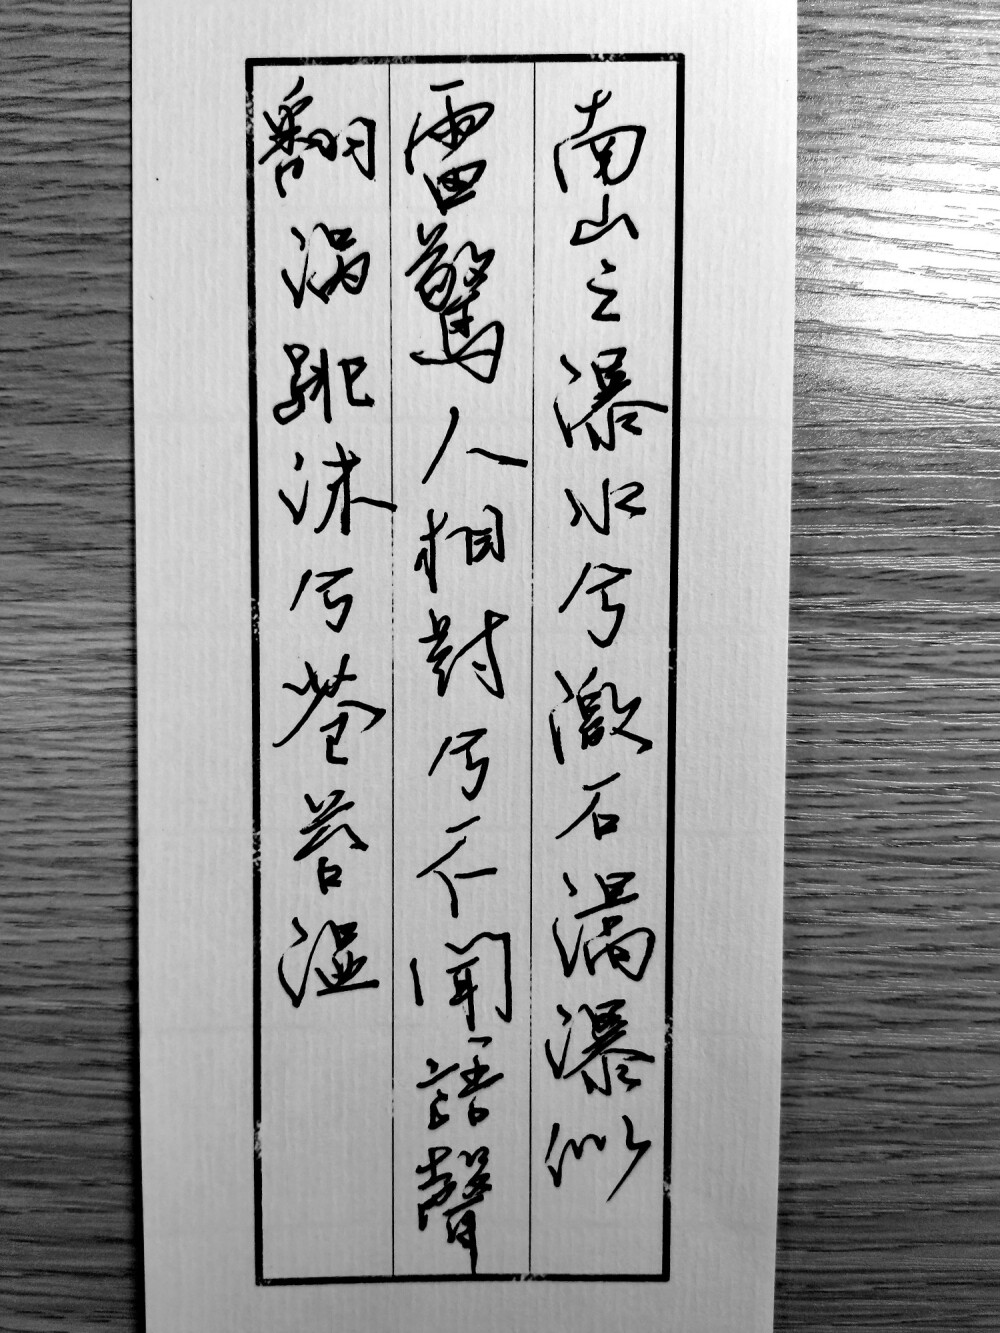 南山之瀑水兮激石滈瀑似
雷驚人相對兮不聞語聲
翻渦跳沫兮蒼苔濕